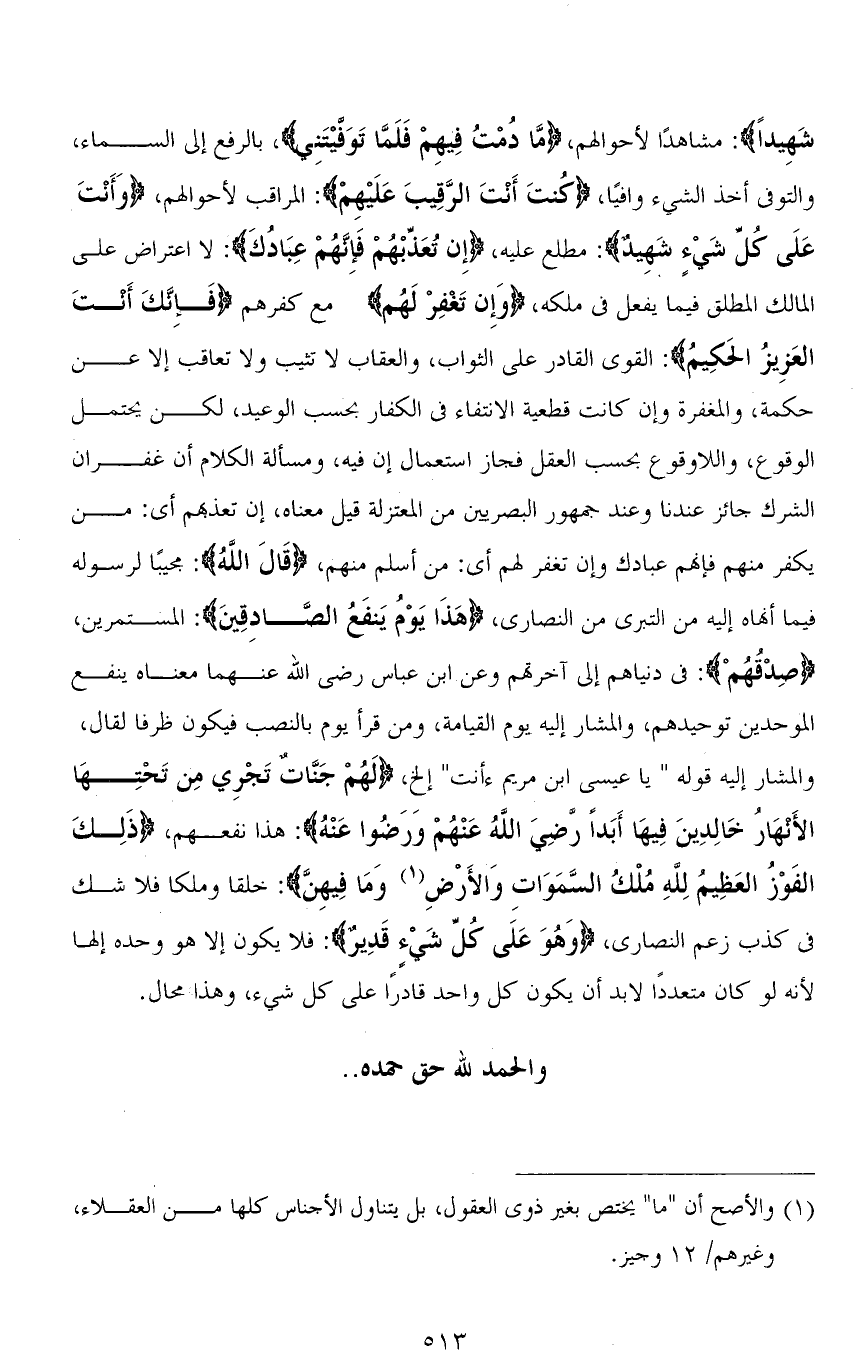 شَهِيداً﴾: مشاهدًا لأحوالهم، ﴿مَّا دُمْتُ فِيهِمْ فَلَمَّا تَوَفَّيْتَنِي﴾، بالرفع إلى الســـماء،
والتوفى أخذ الشيء وافيًا، ﴿كُنتَ أَنْتَ الرَّقِيبَ عَلَيْهِمْ﴾: المراقب لأحوالهم، ﴿وَأَنْتَ
عَلَى كُلِّ شَيْءٍ شَهِيدٌ﴾: مطلع عليه، ﴿إِن تُعَذِّبْهُمْ فَإِنَّهُمْ عِبَادُكَ﴾: لا اعتراض علـى
المالك المطلق فيما يفعل فى ملكه، ﴿وَإِن تَغْفِرْ لَهُم﴾ مع كفرهم ﴿فَـــإِنَّكَ أَنْـــتَ
العَزِيزُ الحَكِيمُ﴾: القوى القادر على الثواب، والعقاب لا تثيب ولا تعاقب إلا عـــن
حكمة، والمغفرة وإن كانت قطعية الانتفاء فى الكفار بحسب الوعيد، لكـــن يحتمـــل
الوقوع، واللاوقوع بحسب العقل فجاز استعمال إن فيه، ومسألة الكلام أن غفـــران
الشرك جائز عندنا وعند جمهور البصريين من المعتزلة قيل معناه، إن تعذبهم أى: مـــن
يكفر منهم فإنهم عبادك وإن تغفر لهم أى: من أسلم منهم، ﴿قَالَ اللَّهُ﴾: مجيبًا لرسوله
فيما أنهاه إليه من التبرى من النصارى، ﴿هَذَا يَوْمُ يَنفَعُ الصَّـــادِقِينَ﴾: المســتمرين،
﴿صِدْقُهُمْ﴾: فى دنياهم إلى آخرتهم وعن ابن عباس رضى الله عنـــهما معنـــاه ينفـــع
الموحدين توحيدهم، والمشار إليه يوم القيامة، ومن قرأ يوم بالنصب فيكون ظرفا لقال،
والمشار إليه قوله " يا عيسى ابن مريم ءأنت" إلخ، ﴿لَهُمْ جَنَّاتٌ تَجْرِي مِن تَحْتِـــهَا
الأَنْهَارُ خَالِدِينَ فِيهَا أَبَداً رَّضِيَ اللَّهُ عَنْهُمْ وَرَضُوا عَنْهُ﴾: هذا نفعـــهم، ﴿ذَلِـــكَ
الفَوْزُ العَظِيمُ لِلَّهِ مُلْكُ السَّمَوَاتِ وَالأَرْضِ(١) وَمَا فِيهِنَّ﴾: خلقا وملكا فلا شـــك
فى كذب زعم النصارى، ﴿وَهُوَ عَلَى كُلِّ شَيْءٍ قَدِيرٌ﴾: فلا يكون إلا هو وحده إلهـا
لأنه لو كان متعددًا لابد أن يكون كل واحد قادرًا على كل شيء، وهذا محال.
والحمد لله حق حمده..
(١) والأصح أن "ما" يختص بغير ذوى العقول، بل يتناول الأجناس كلها مـــن العقـــلاء،
وغيرهم/ ١٢ وجيز.
٥١٣